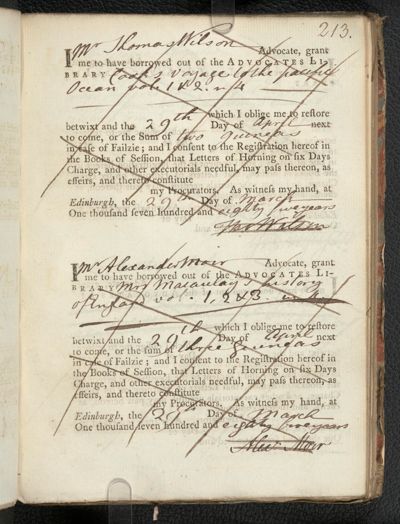 213.
I Mr Thomas Wilson Advocate, grant
me to have borrowed out of the ADVOCATES LI-
BRARY Cook's Voyage to the pacific
Ocean vols. 1 & 2. in 4
which I oblige me to restore
betwixt and the 29th Day of April next
to come, or the Sum of two guineas
in case of Failzie; and I consent to the Registration hereof in
the Books of Session, that Letters of Horning on six Days
Charge, and other executorials needful, may pass thereon, as
effeirs, and thereto constitute
my Procurators. As witness my hand, at
Edinburgh, the 29th Day of March
One thousand seven hundred and eighty five years
Wilson
I Mr Alexander Moir Advocate, grant
me to have borrowed out of the ADVOCATES LI-
BRARY Mrs Macaulay's history
of vol. 1, 2 & 3.
which I oblige me to restore
betwixt and the 29th Day of April next
to come, or the sum of three Guineas
in case of Failzie; and I consent to the Registration hereof in
the Books of Session, that Letters of Horning on six Days
Charge, and other executorials needful, may pass thereon, as
effeirs, and thereto constitute
my Procurators. As witness my hand, at
Edinburgh, the 29th Day of March
One thousand seven hundred and eighty five years
Alexr Moir